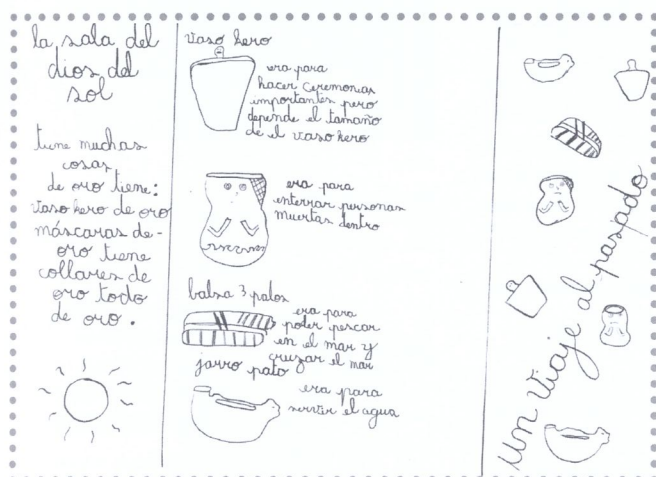 la sala del
dios del
sol
tiene muchas
cosas
de oro tiene:
vaso kero de oro
máscaras de-
oro tiene
collares de
oro todo
de oro.
vaso kero
era para
hacer ceremonias
importantes pero
depende el tamaño
de el vaso kero
era para
enterrar personas
muertas dentro
balsa 3 palos
era para
poder pescar
en el mar y
cruzar el mar
jarro pato
era para
servir el agua
Un Viaje al pasado